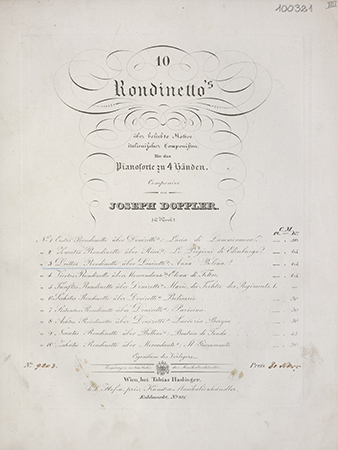 100321
10
Rondinetto's
über beliebte Motive
italienischer Componisten
für das
Pianoforte zu 4 Händen.
Componirt
von
JOSEPH DOPPLER.
C.M.
No 1 Erstes Rondinetto über Donizetti's Lucia di Lammermoor
2 Zweites Rondinetto über
3 Drittes Rondinetto über Donizetti's Anna Bolena
4 Viertes Rondinetto über Mercadante's Elena di Feltre
5 Fünftes Rondinetto über Donizetti's Marie, die Tochter des Regiments
6 Sechstes Rondinetto über Donizetti's Belisario
7 Siebentes Rondinetto über Donizetti's Parisina
8 Achtes Rondinetto über Donizetti's Lucrezia Borgia
9 Neuntes Rondinetto über Bellini's Beatrice di Tenda
10 Zehntes Rondinetto über Mercadante's Il Giuramento
Eigenthum des Verlegers.
No. 9203.
Preis
Wien, bei Tobias Haslinger,
k.k. Hof u. priv. Kunst u. Musikalienhändler.
Kohlmarkt,